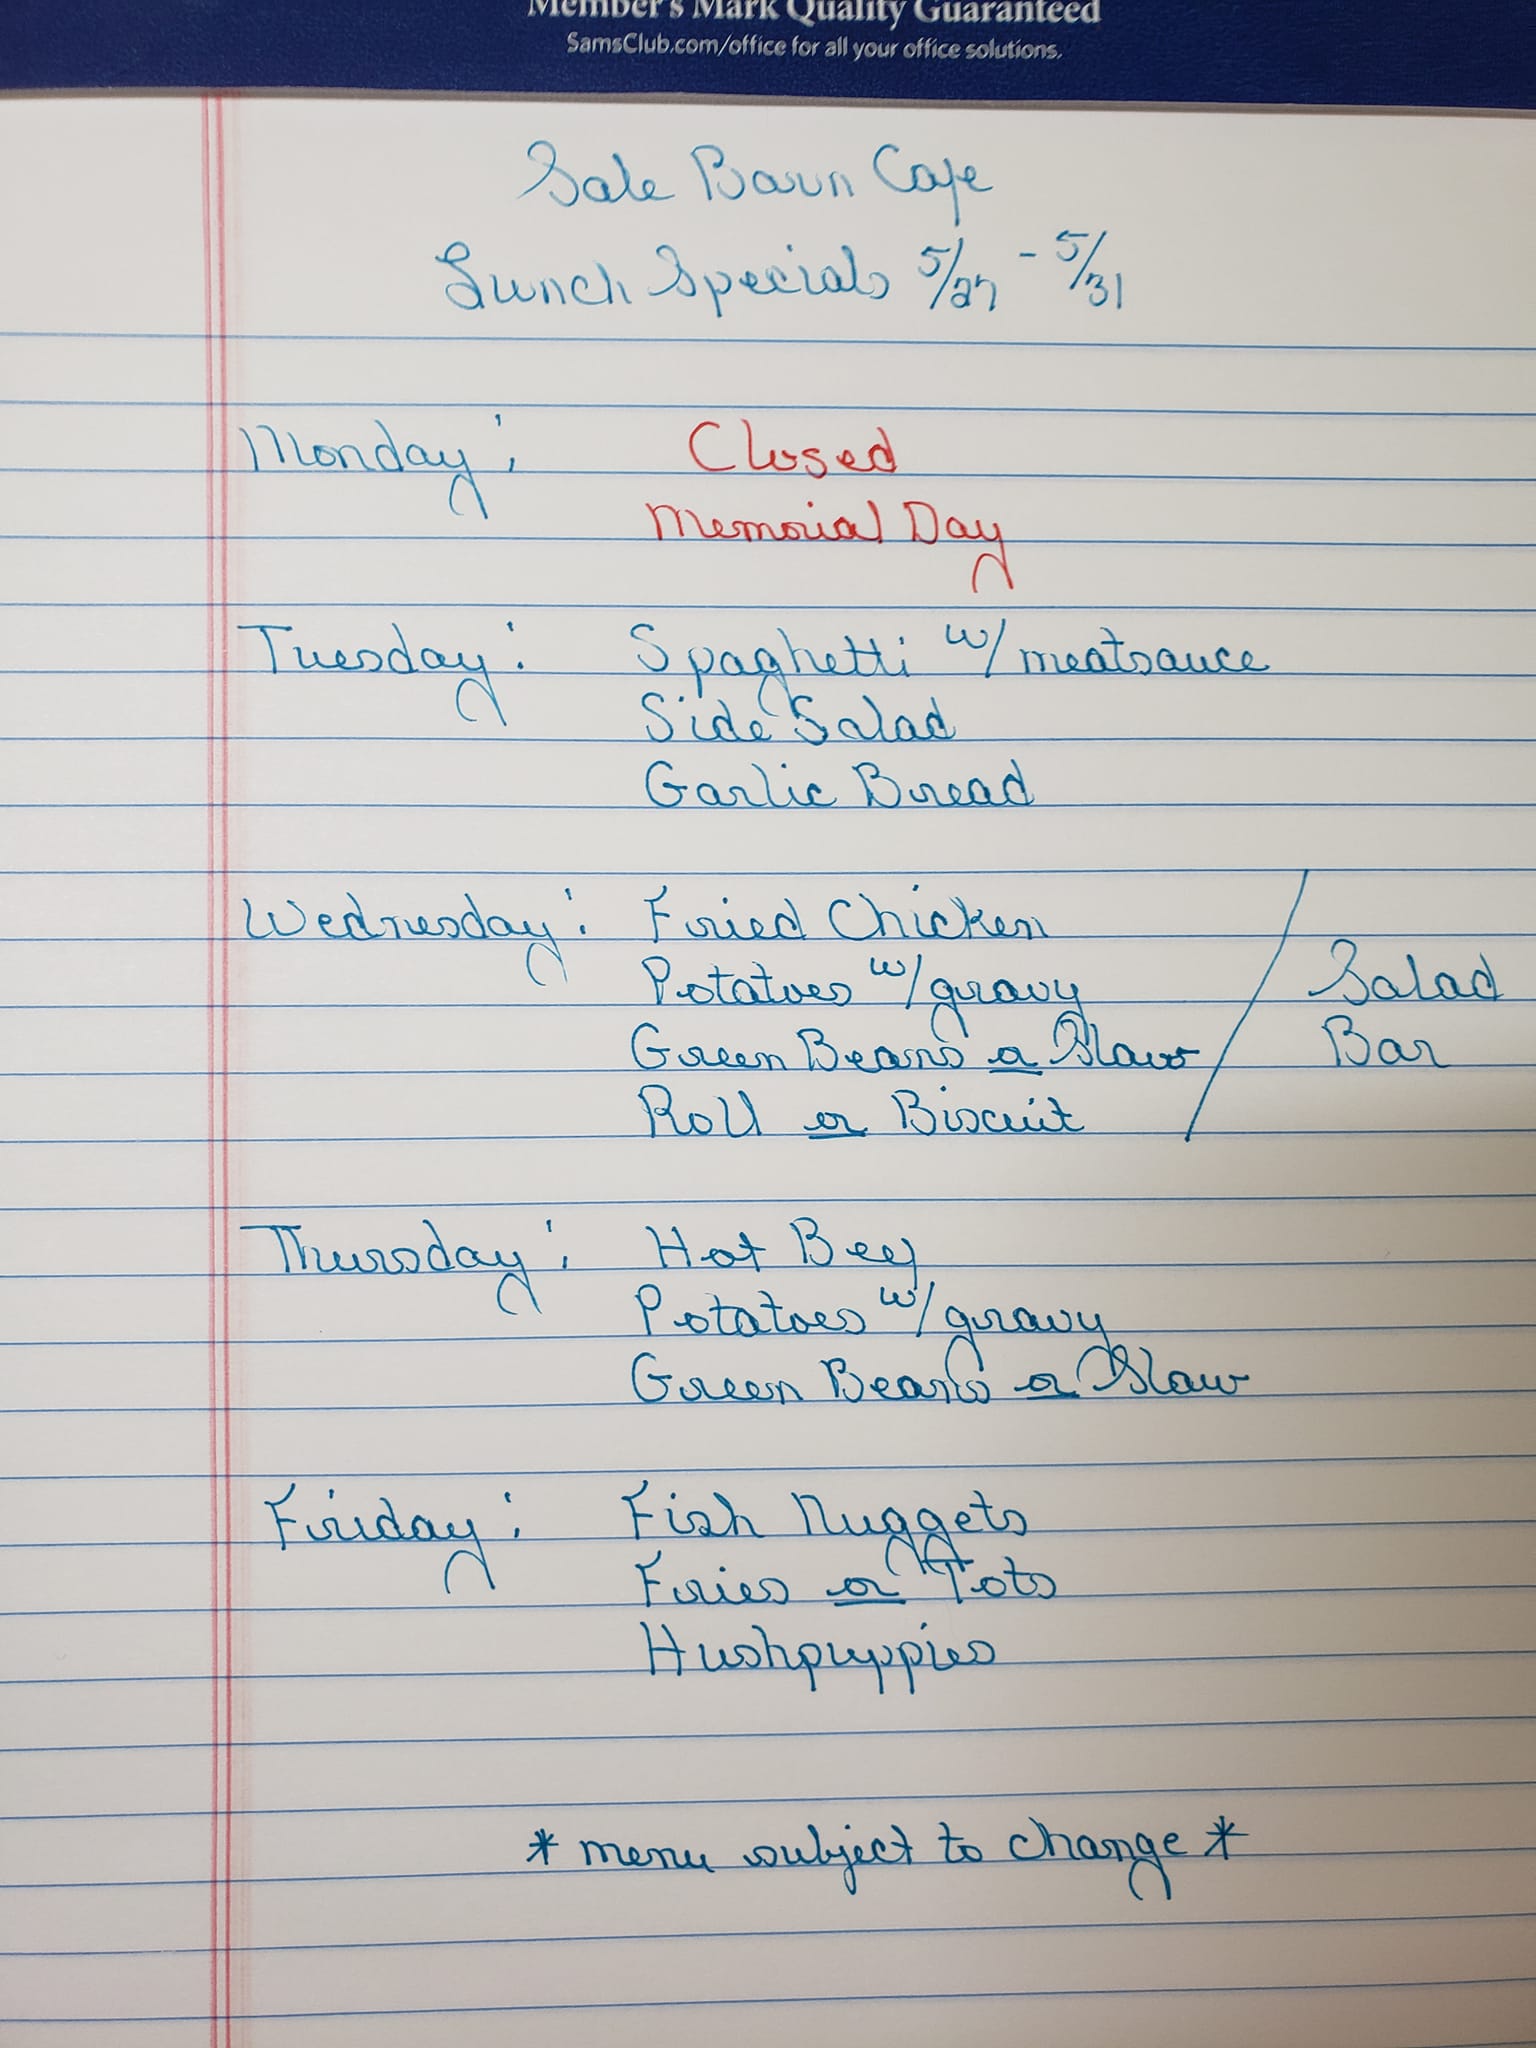 Member's Mark Quality Guaranteed
SamsClub.com/office for all your office solutions.
Sale Barn Cafe
Lunch Specials 5/27 - 5/31
Monday: Closed
Memorial Day
Tuesday: Spaghetti w/ meatsauce
Side Salad
Garlic Bread
Wednesday: Fried Chicken
Potatoes w/ gravy
Green Beans or Slaw / Salad
Bar
Roll or Biscuit
Thursday: Hot Beef
Potatoes w/ gravy
Green Beans or Slaw
Friday: Fish Nuggets
Fries or Tots
Hushpuppies
* menu subject to change *